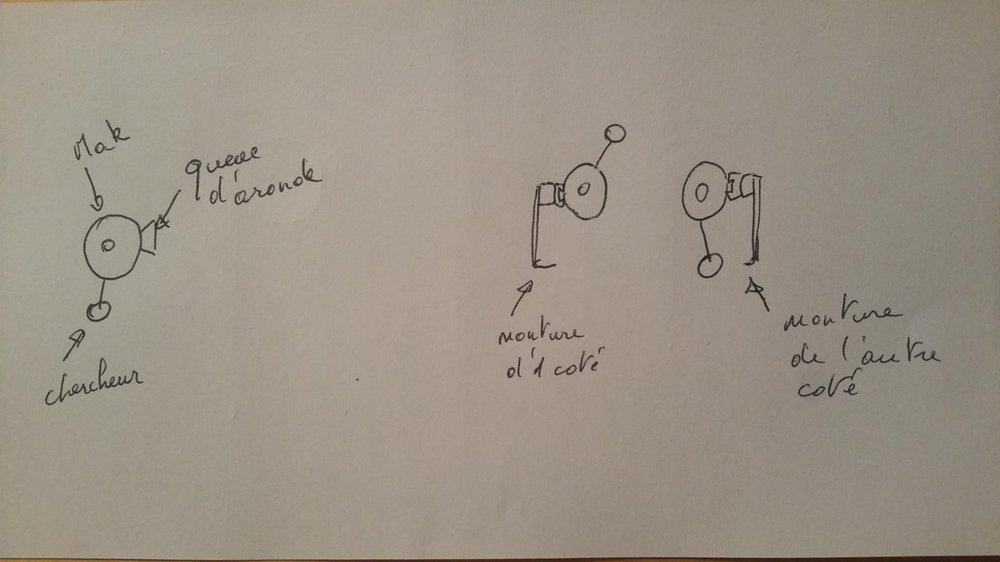 Mak
queue
d'aronde
chercheur
monture
d'1 coté
monture
de l'autre
coté